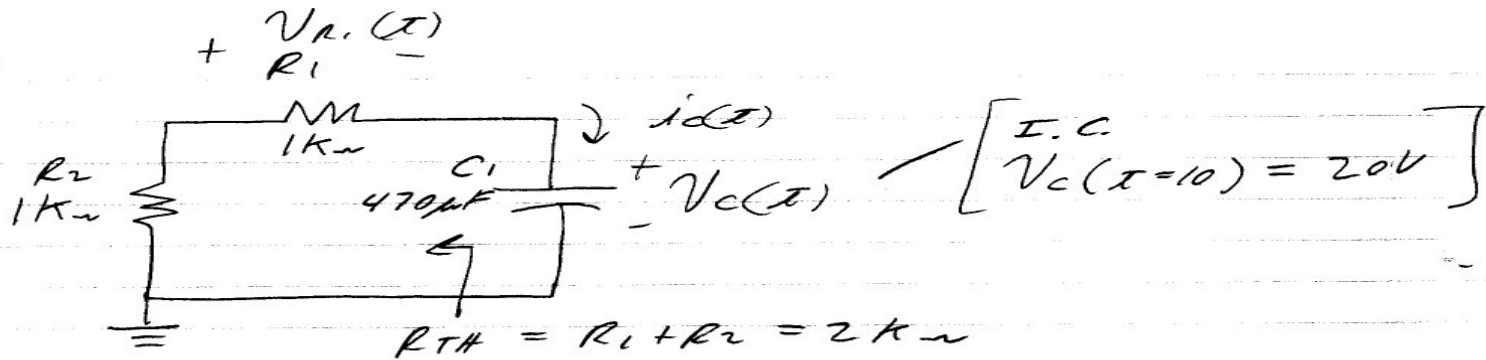 + VR1(t) -
R1
1KΩ
ic(t)
R2
1KΩ
C1
470µF
+
Vc(t)
-
[I.C.
Vc(t=10) = 20V]
RTH = R1 + R2 = 2KΩ